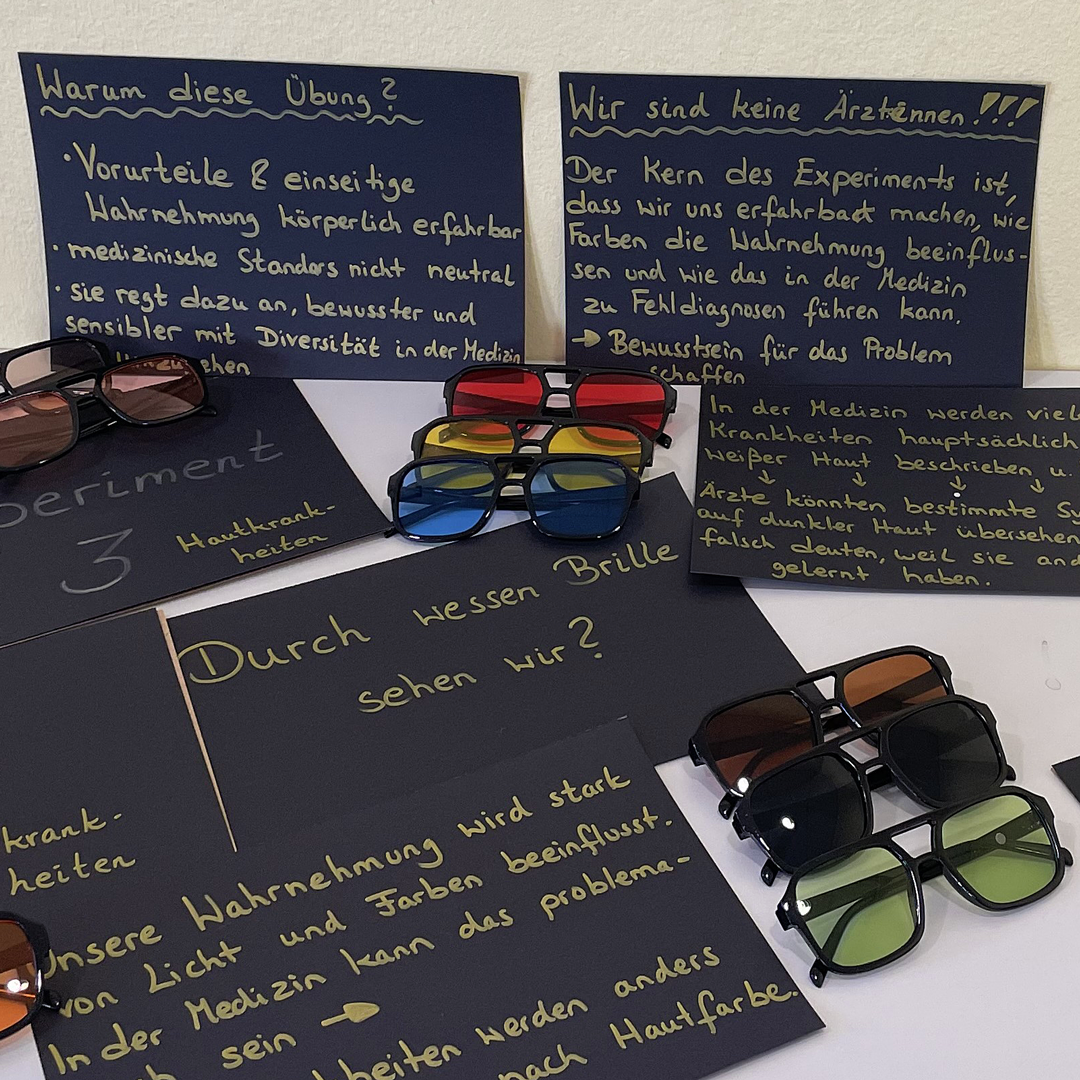 Warum diese Übung?
• Vorurteile & einseitige
Wahrnehmung körperlich erfahrbar
• medizinische Standars nicht neutral
• sie regt dazu an, bewusster und
sensibler mit Diversität in der Medizin
Wir sind keine Ärztinnen!!!
Der Kern des Experiments ist,
dass wir uns erfahrbar machen, wie
Farben die Wahrnehmung beeinflus-
sen und wie das in der Medizin
zu Fehldiagnosen führen kann.
→ Bewusstsein für das Problem
schaffen
In der Medizin werden
Krankheiten hauptsächlich
weißer Haut beschrieben u.
↓ ↓ ↓ ↓
Ärzte könnten bestimmte
auf dunkler Haut übersehen
falsch deuten, weil sie
gelernt haben.
3
Hautkrank-
heiten
Durch wessen Brille
sehen wir?
krank-
heiten
Unsere Wahrnehmung wird stark
von Licht und Farben beeinflusst.
In der Medizin kann das problema-
sein →
werden anders
nach Hautfarbe.